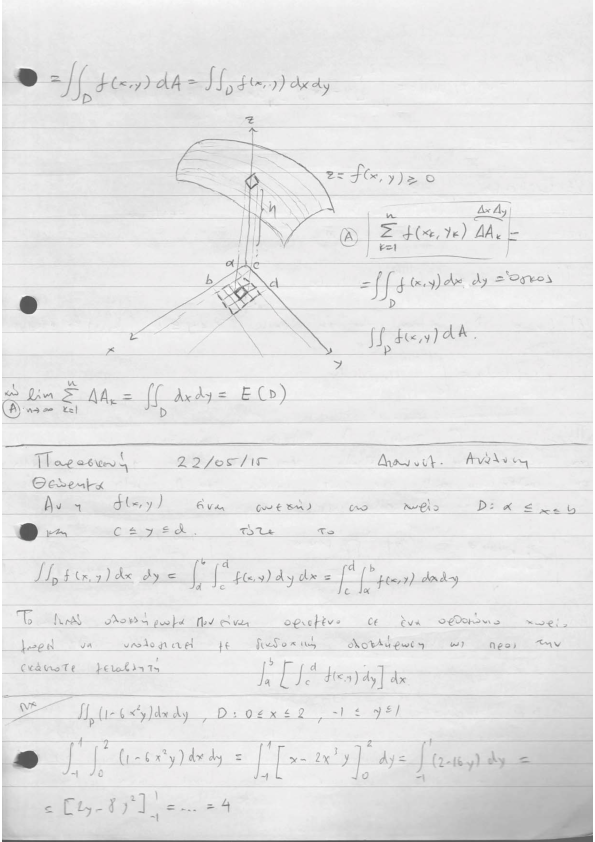 = ∬_D f(x,y) dA = ∬_D f(x,y) dxdy
z
z = f(x,y) ≥ 0
h
Δx Δy
Ⓐ Σ_{k=1}^{n} f(x_k, y_k) ΔA_k =
α c
b d
= ∬_D f(x,y) dx, dy = Όγκος
x y
∬_D f(x,y) dA.
lim_{n→∞} Σ_{k=1}^{n} ΔA_k = ∬_D dxdy = E(D)
Ⓐ
Παρασκευή 22/05/15 Διανυσ. Ανάλυση
Θεώρημα
Αν η f(x,y) είναι συνεχής στο χωρίο D: α ≤ x ≤ b
και c ≤ y ≤ d. τότε το
∬_D f(x,y) dx dy = ∫_α^b ∫_c^d f(x,y) dy dx = ∫_c^d ∫_α^b f(x,y) dxdy
Το διπλό ολοκλήρωμα που είναι ορισμένο σε ένα ορθογώνιο χωρίο
μπορεί να υπολογιστεί με διαδοχική ολοκλήρωση ως προς την
εκάστοτε μεταβλητή ∫_a^b [∫_c^d f(x,y) dy] dx
πχ ∬_D (1-6x²y) dxdy, D: 0 ≤ x ≤ 2, -1 ≤ y ≤ 1
∫_{-1}^{1} ∫_0^2 (1-6x²y) dx dy = ∫_{-1}^{1} [x-2x³y]_0^2 dy = ∫_{-1}^{1} (2-16y) dy =
= [2y-8y²]_{-1}^{1} = ... = 4